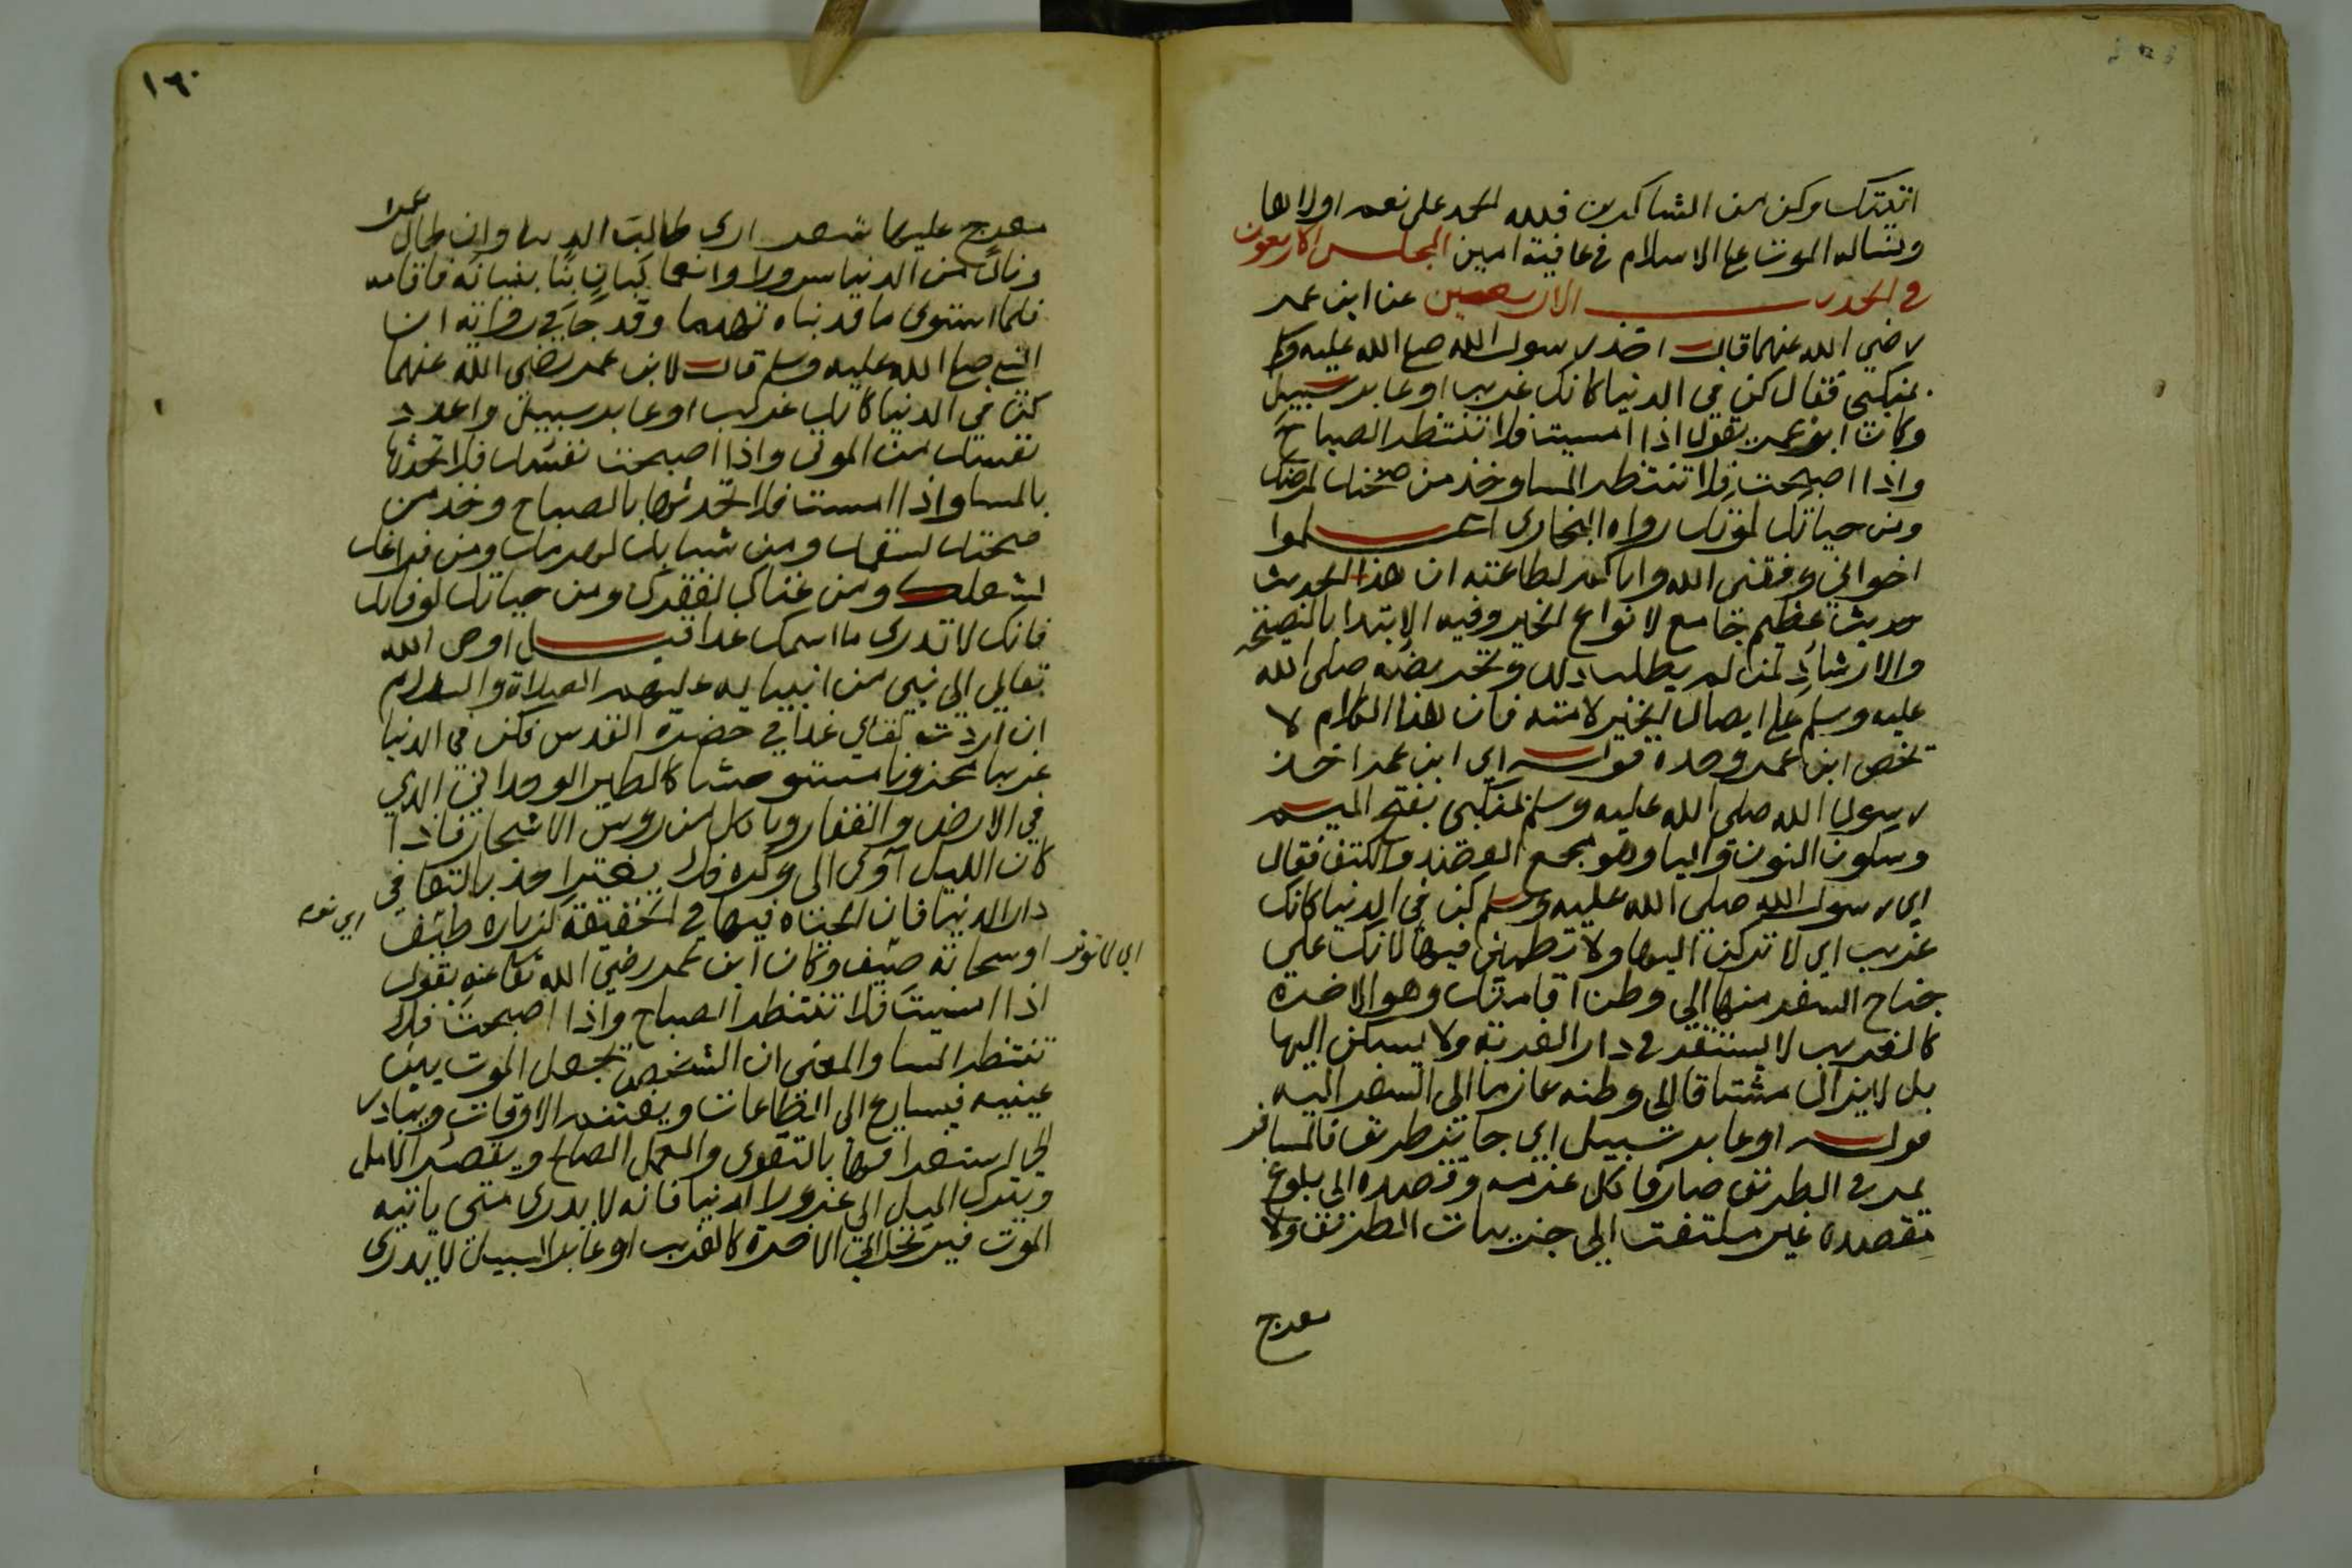 اتيتك وكن من الشاكرين فلله الحمد على نعمه اولاها
ونساله الموت على الاسلام في عافية امين المجلس الاربعون
في الحديث الاربعين عن ابن عمر
رضي الله عنهما قال اخذ رسول الله صلى الله عليه وسلم
بمنكبي فقال كن في الدنيا كانك غريب او عابر سبيل
وكان ابن عمر يقول اذا امسيت فلا تنتظر الصباح
واذا اصبحت فلا تنتظر المسا وخذ من صحتك لمرضك
ومن حياتك لموتك رواه البخاري اعلموا
اخواني وفقني الله واياكم لطاعته ان هذا الحديث
حديث عظيم جامع لانواع الخير وفيه الابتدا بالنصيحة
والارشاد لمن لم يطلب ذلك وتحريضه صلى الله
عليه وسلم على ايصال الخير لامته فان هذا الكلام لا
يخص ابن عمر وحده قوله اي ابن عمر اخذ
رسول الله صلى الله عليه وسلم بمنكبي بفتح الميم
وسكون النون واليا وهو مجمع العضد والكتف فقال
اي رسول الله صلى الله عليه وسلم كن في الدنيا كانك
غريب اي لا تركن اليها ولا تطمئن فيها لانك على
جناح السفر منها الى وطن اقامتك وهو الاخرة
كالغريب لا يستقر في دار الغربة ولا يسكن اليها
بل لا يزال مشتاقا الى وطنه عازما الى السفر اليه
قوله او عابر سبيل اي جائز طريق فالمسافر
يمر في الطريق صارفا كل عزمه وقصده الى بلوغ
مقصده غير ملتفت الى جزيات الطريق ولا
معرج
١٦٠
معرج عليها شعر ارى طالب الدنيا وان طال عمره
ونال من الدنيا سرورا وانعما كبان بنا بنيانه فاقامه
فلما استوى ما قد بناه تهدما وقد جا في رواية ان
النبي صلى الله عليه وسلم قال لابن عمر رضي الله عنهما
كن في الدنيا كانك غريب او عابر سبيل واعدد
نفسك من الموتى واذا اصبحت نفسك فلا تحدثها
بالمسا واذا امسيت فلا تحدثها بالصباح وخذ من
صحتك لسقمك ومن شبابك لهرمك ومن فراغك
لشغلك ومن غناك لفقرك ومن حياتك لوفاتك
فانك لا تدري ما اسمك غدا قيل اوحى الله
تعالى الى نبي من انبيايه عليهم الصلاة والسلام
ان اردت لقاي غدا في حضرة القدس فكن في الدنيا
غريبا محزونا مستوحشا كالطير الوحداني الذي
في الارض والقفار وياكل من روس الاشجار فاذا
كان الليل آوى الى وكره فلا يغتر احد بالبقا في
دار الدنيا فان الحياه فيها في الحقيقة كزيارة طيف
اي نوم
اي لا تدوم
او سحابة صيف وكان ابن عمر رضي الله تعالى عنه يقول
اذا امسيت فلا تنتظر الصباح واذا اصبحت فلا
تنتظر المسا والمعنى ان الشخص يجعل الموت بين
عينيه فيسارع الى الطاعات ويغتنم الاوقات ويبادر
الى استغراقها بالتقوى والعمل الصالح ويقصر الامل
ويترك الميل الى غرور الدنيا فانه لا يدري متى ياتيه
الموت فيرتحل الى الاخرة كالغريب او عابر السبيل لا يدري